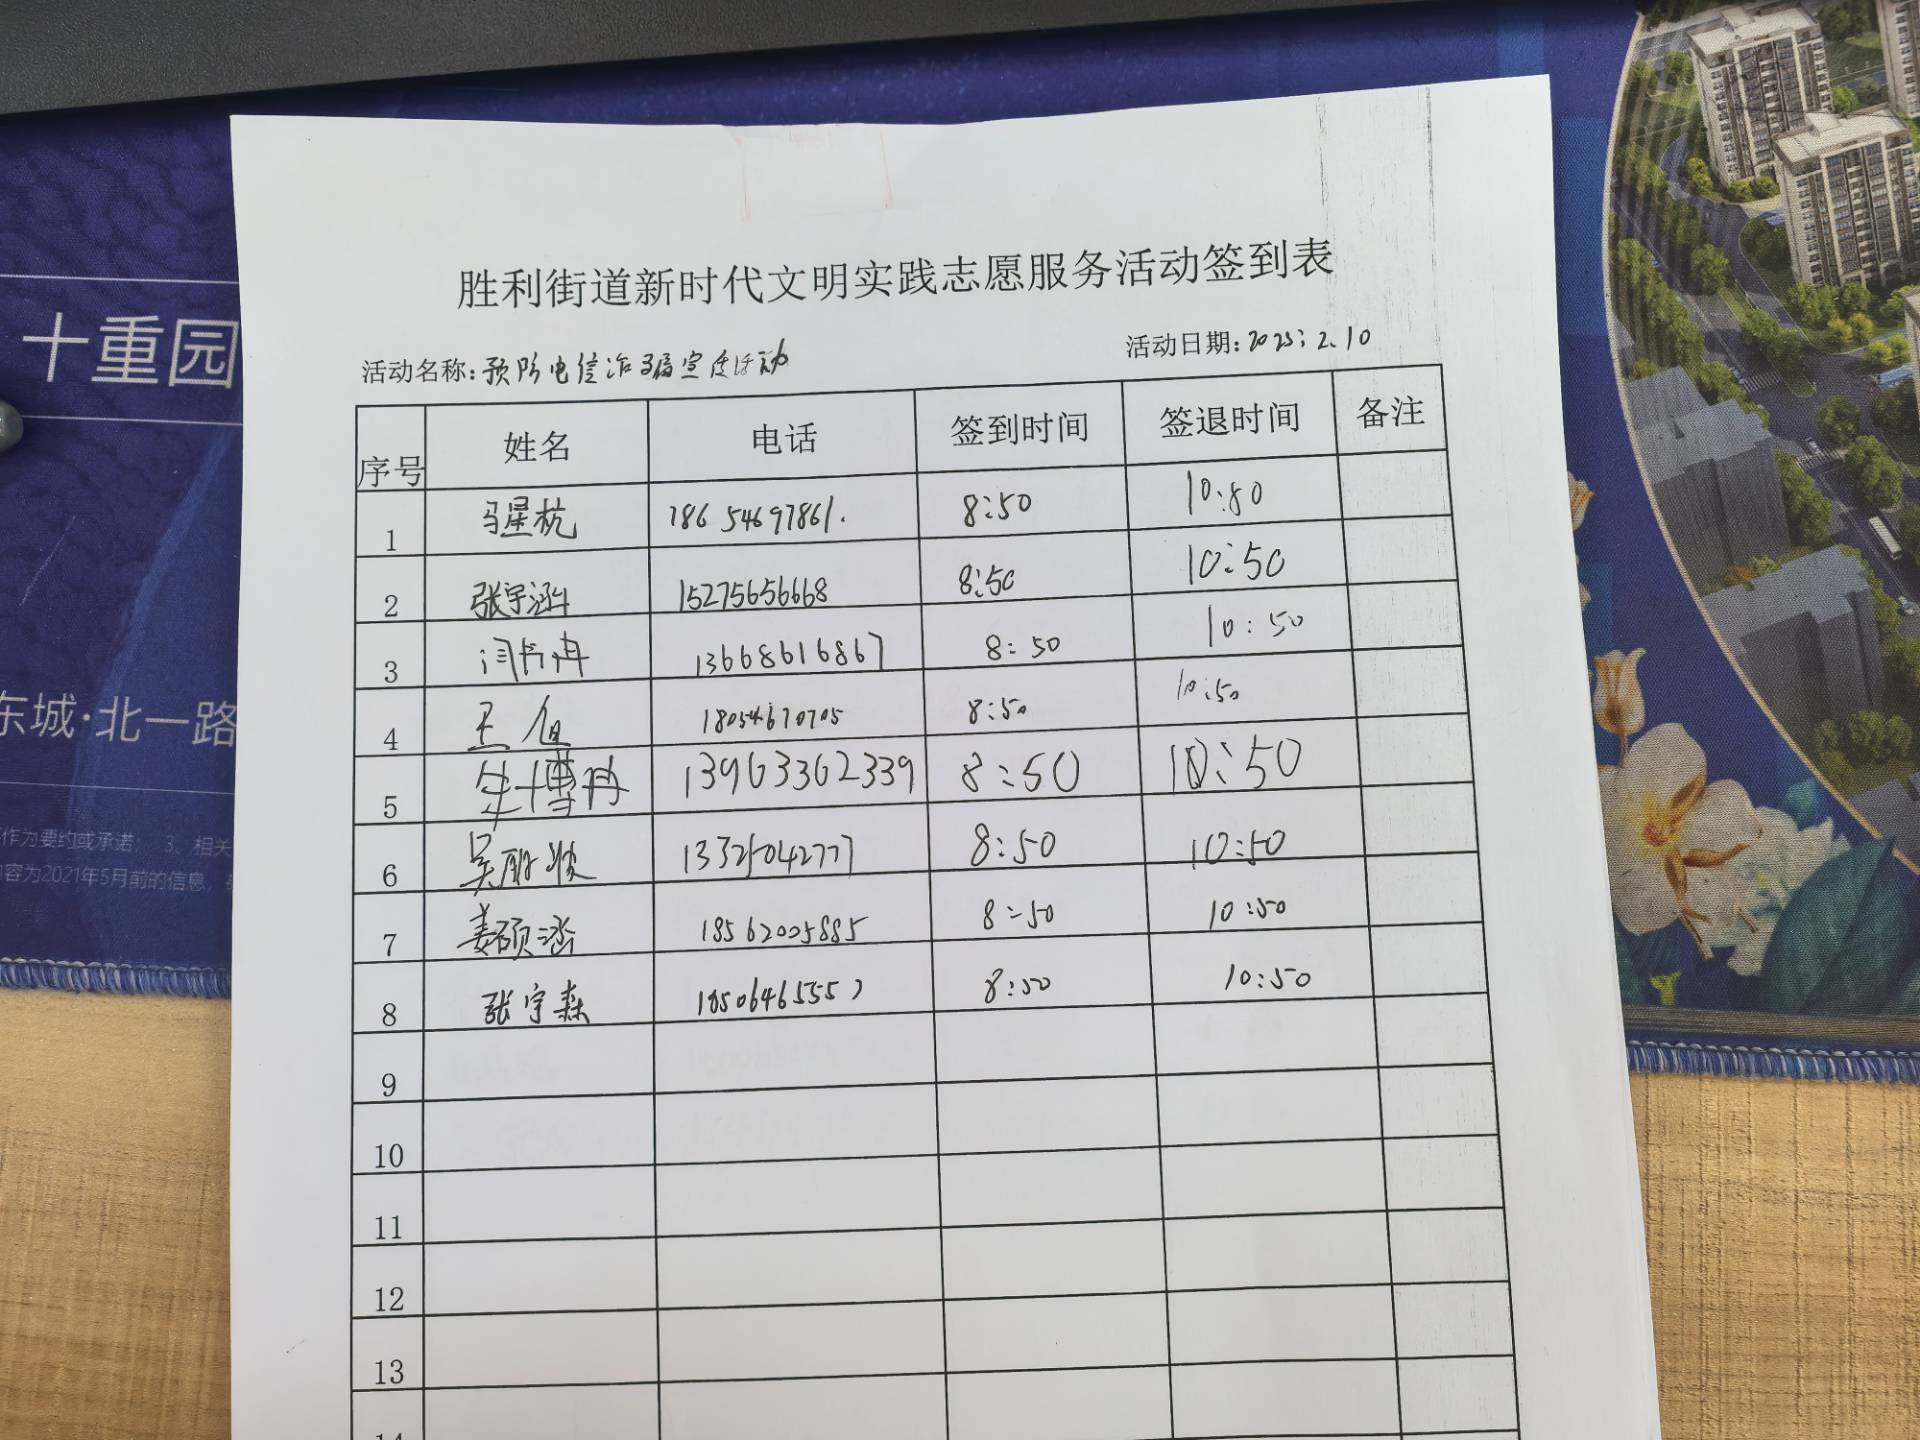 胜利街道新时代文明实践志愿服务活动签到表
活动名称:预防电信诈骗宣传活动 活动日期:2023.2.10
序号 姓名 电话 签到时间 签退时间 备注
1 马星杭 18654697861. 8:50 10:50
2 张宇涵 15275656668 8:50 10:50
3 13668616867 8:50 10:50
4 王 18054670705 8:50 10:50
5 博冉 13963362339 8:50 10:50
6 吴 13325042777 8:50 10:50
7 姜硕涵 18562005885 8:50 10:50
8 张宇森 18506465557 8:50 10:50
9
10
11
12
13
14
十重园
东城·北一路
作为要约或承诺; 3、相关
内容为2021年5月前的信息,